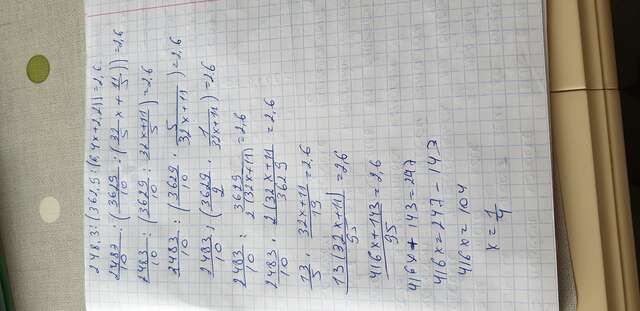 248,3:(362,9:(6,4x+2,2))=2,6
2483/10:(3629/10:(32/5x+11/5))=2,6
2483/10:(3629/10:32x+11/5)=2,6
2483/10:(3629/10·5/32x+11)=2,6
2483/10:(3629/2·1/32x+11)=2,6
2483/10:3629/2(32x+11)=2,6
2483/10·2(32x+11)/3629=2,6
13/5·32x+11/19=2,6
13(32x+11)/95=2,6
416x+143/95=2,6
416x+143=247
416x=247-143
416x=104
x=1/4